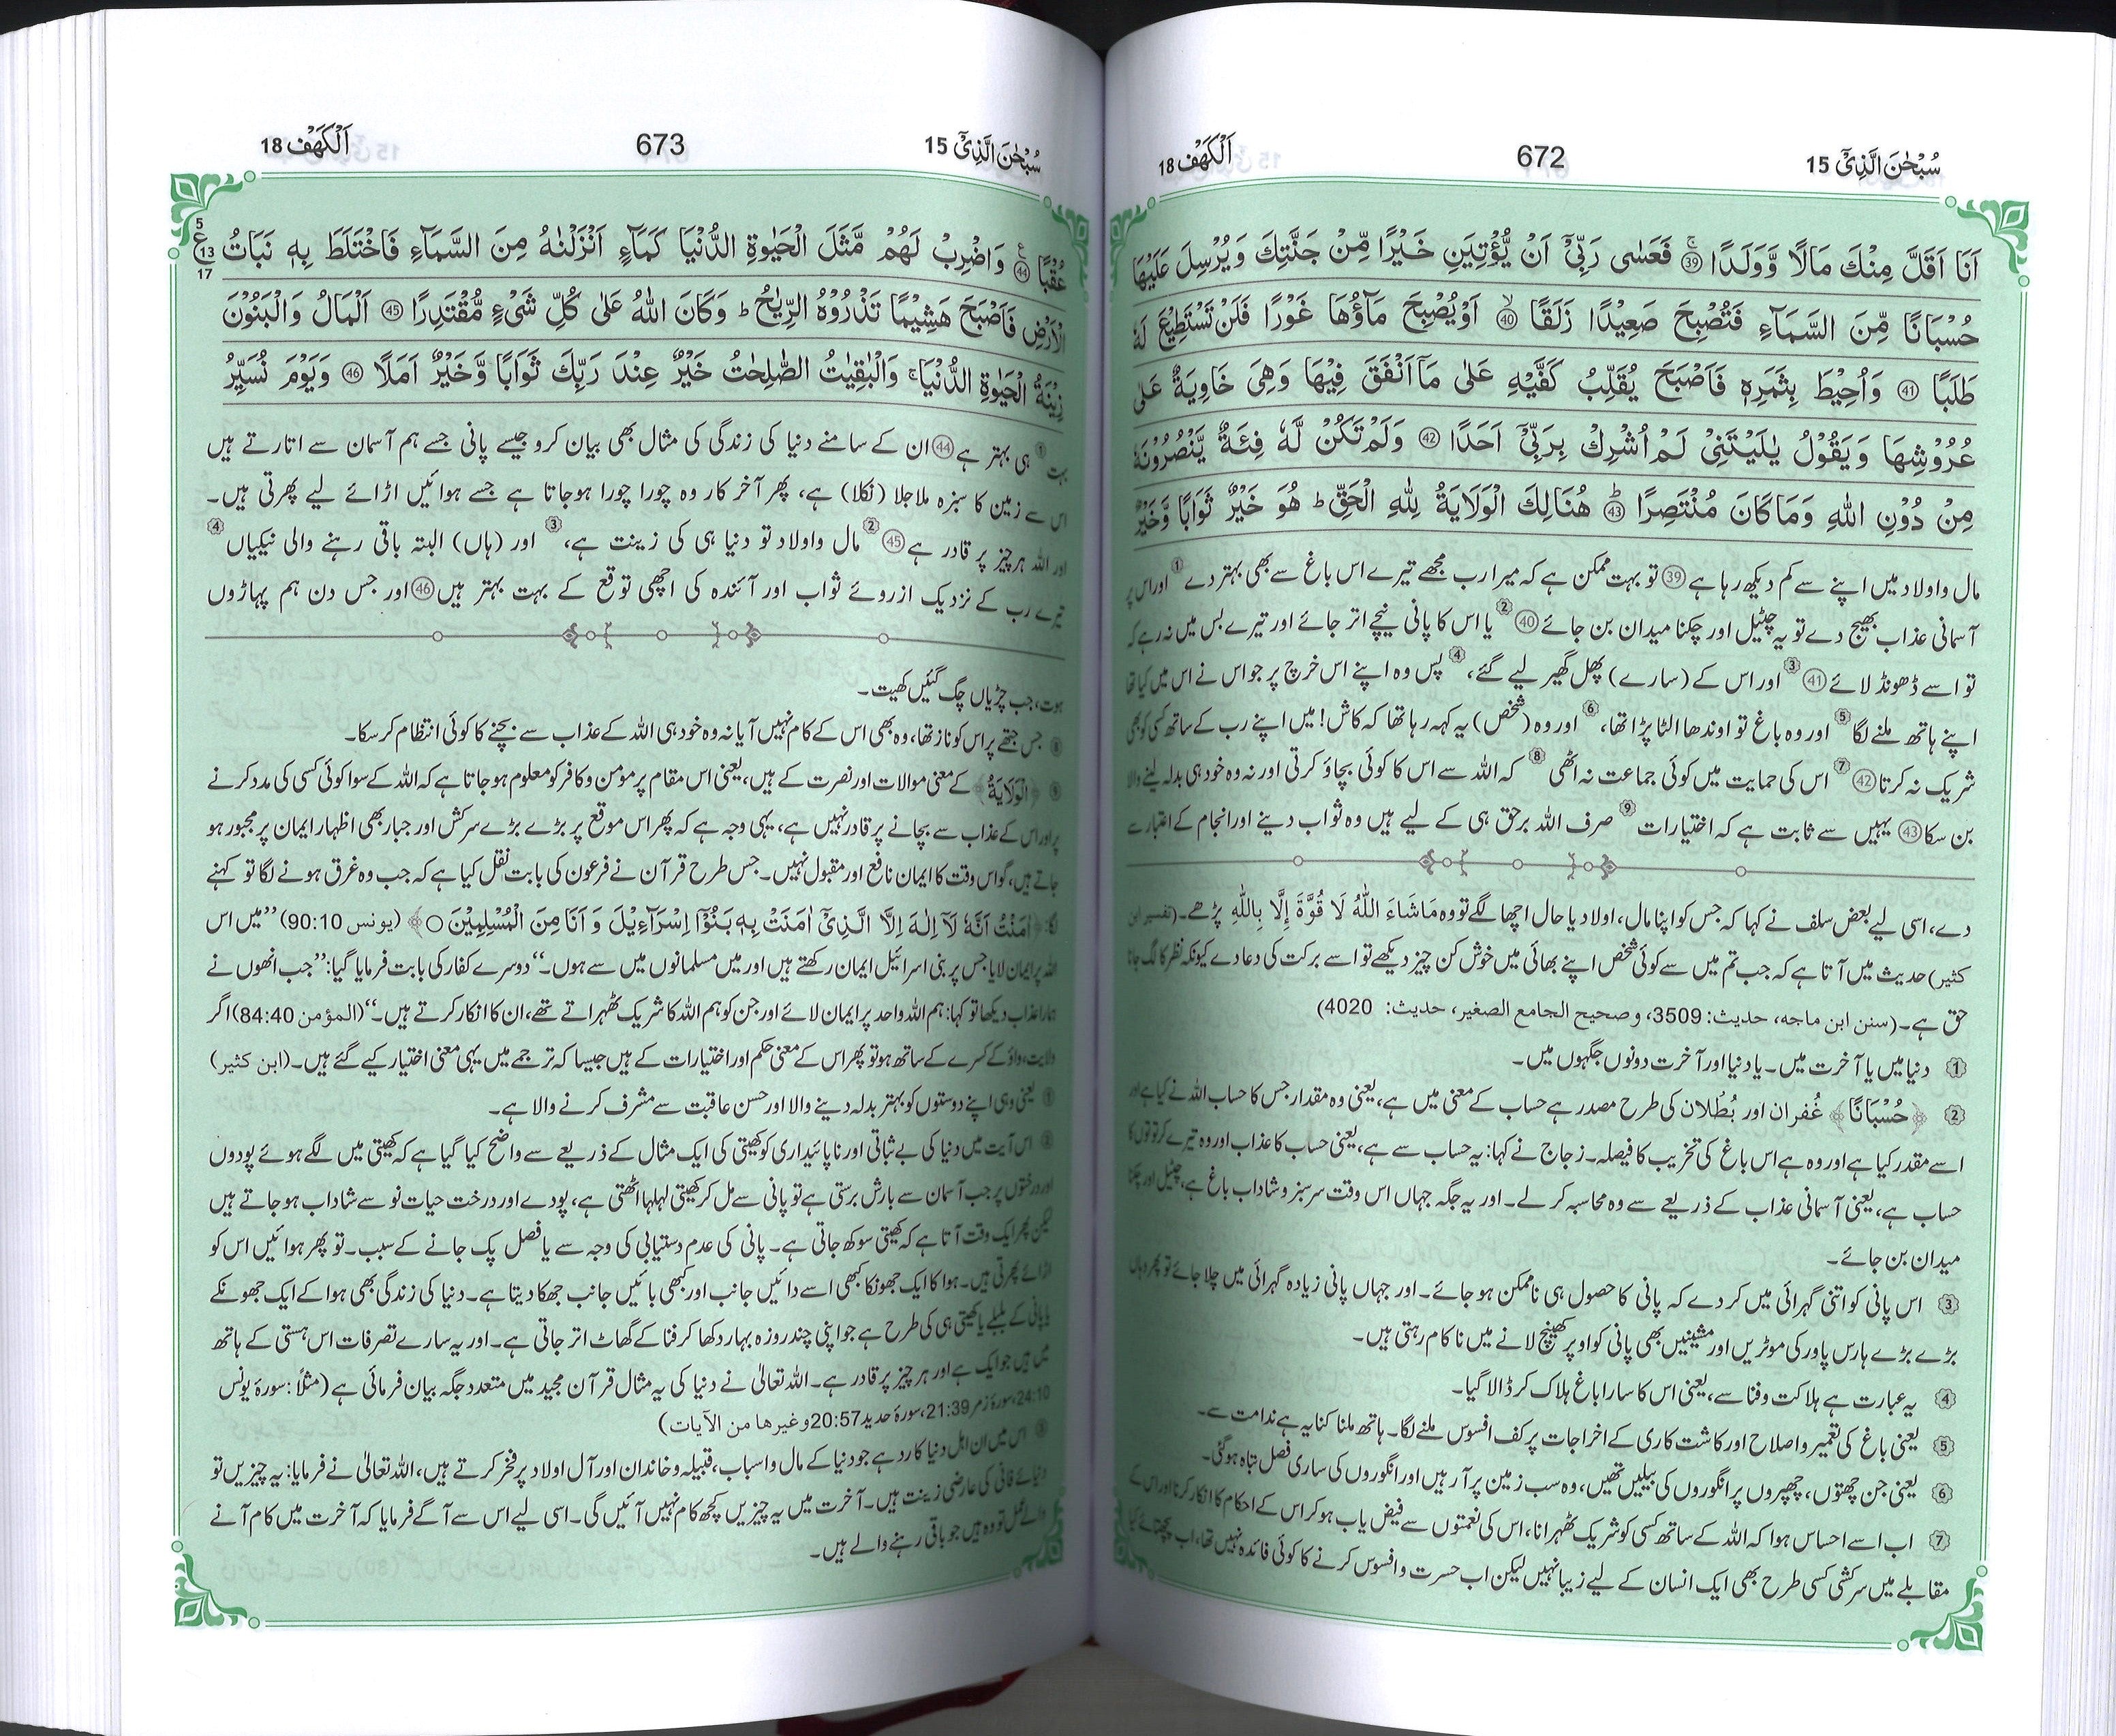 سُبْحٰنَ الَّذِيْٓ 15
672
اَلْكَهْف 18
اَنَا اَقَلَّ مِنْكَ مَالًا وَّوَلَدًا ۚ ﴿39﴾ فَعَسٰى رَبِّيْٓ اَنْ يُّؤْتِيَنِ خَيْرًا مِّنْ جَنَّتِكَ وَيُرْسِلَ عَلَيْهَا
حُسْبَانًا مِّنَ السَّمَآءِ فَتُصْبِحَ صَعِيْدًا زَلَقًا ۙ ﴿40﴾ اَوْ يُصْبِحَ مَآؤُهَا غَوْرًا فَلَنْ تَسْتَطِيْعَ لَهٗ
طَلَبًا ﴿41﴾ وَاُحِيْطَ بِثَمَرِهٖ فَاَصْبَحَ يُقَلِّبُ كَفَّيْهِ عَلٰى مَآ اَنْفَقَ فِيْهَا وَهِيَ خَاوِيَةٌ عَلٰى
عُرُوْشِهَا وَيَقُوْلُ يٰلَيْتَنِيْ لَمْ اُشْرِكْ بِرَبِّيْٓ اَحَدًا ﴿42﴾ وَلَمْ تَكُنْ لَّهٗ فِئَةٌ يَّنْصُرُوْنَهٗ
مِنْ دُوْنِ اللّٰهِ وَمَا كَانَ مُنْتَصِرًا ﴿43﴾ هُنَالِكَ الْوَلَايَةُ لِلّٰهِ الْحَقِّ ؕ هُوَ خَيْرٌ ثَوَابًا وَّخَيْرٌ
مال و اولاد میں اپنے سے کم دیکھ رہا ہے ﴿39﴾ تو بہت ممکن ہے کہ میرا رب مجھے تیرے اس باغ سے بھی بہتر دے ① اور اس پر
آسمانی عذاب بھیج دے تو یہ چٹیل اور چکنا میدان بن جائے ﴿40﴾ ② یا اس کا پانی نیچے اتر جائے اور تیرے بس میں نہ رہے کہ
تو اسے ڈھونڈ لائے ﴿41﴾ ③ اور اس کے (سارے) پھل گھیر لیے گئے، ④ پس وہ اپنے اس خرچ پر جو اس نے اس میں کیا تھا
اپنے ہاتھ ملنے لگا ⑤ اور وہ باغ تو اوندھا الٹا پڑا تھا، ⑥ اور وہ (شخص) یہ کہہ رہا تھا کہ کاش! میں اپنے رب کے ساتھ کسی کو بھی
شریک نہ کرتا ﴿42﴾ ⑦ اس کی حمایت میں کوئی جماعت نہ اٹھی ⑧ کہ اللہ سے اس کا کوئی بچاؤ کرتی اور نہ وہ خود ہی بدلہ لینے والا
بن سکا ﴿43﴾ یہیں سے ثابت ہے کہ اختیارات ⑨ صرف اللہ برحق ہی کے لیے ہیں وہ ثواب دینے اور انجام کے اعتبار سے
دے، اسی لیے بعض سلف نے کہا کہ جس کو اپنا مال، اولاد یا حال اچھا لگے تو وہ مَاشَاءَ اللّٰهُ لَا قُوَّةَ إِلَّا بِاللّٰهِ پڑھے۔ (تفسیر ابن
کثیر) حدیث میں آتا ہے کہ جب تم میں سے کوئی شخص اپنے بھائی میں خوش کن چیز دیکھے تو اسے برکت کی دعا دے کیونکہ نظر کا لگ جانا
حق ہے۔ (سنن ابن ماجه، حديث: 3509، و صحيح الجامع الصغير، حديث: 4020)
① دنیا میں یا آخرت میں۔ یا دنیا اور آخرت دونوں جگہوں میں۔
② ﴿حُسْبَانًا﴾ غُفران اور بُطْلان کی طرح مصدر ہے حساب کے معنی میں ہے، یعنی وہ مقدار جس کا حساب اللہ نے کیا ہے اور
اسے مقدر کیا ہے اور وہ ہے اس باغ کی تخریب کا فیصلہ۔ زجاج نے کہا: یہ حساب سے ہے، یعنی حساب کا عذاب اور وہ تیرے کرتوتوں کا
حساب ہے، یعنی آسمانی عذاب کے ذریعے سے وہ محاسبہ کر لے۔ اور یہ جگہ جہاں اس وقت سرسبز و شاداب باغ ہے، چٹیل اور چکنا
میدان بن جائے۔
③ اس پانی کو اتنی گہرائی میں کر دے کہ پانی کا حصول ہی ناممکن ہو جائے۔ اور جہاں پانی زیادہ گہرائی میں چلا جائے تو پھر وہاں
بڑے بڑے ہارس پاور کی موٹریں اور مشینیں بھی پانی کو اوپر کھینچ لانے میں ناکام رہتی ہیں۔
④ یہ عبارت ہے ہلاکت و فنا سے، یعنی اس کا سارا باغ ہلاک کر ڈالا گیا۔
⑤ یعنی باغ کی تعمیر و اصلاح اور کاشت کاری کے اخراجات پر کف افسوس ملنے لگا۔ ہاتھ ملنا کنایہ ہے ندامت سے۔
⑥ یعنی جن چھتوں، چھپروں پر انگوروں کی بیلیں تھیں، وہ سب زمین پر آ رہیں اور انگوروں کی ساری فصل تباہ ہو گئی۔
⑦ اب اسے احساس ہوا کہ اللہ کے ساتھ کسی کو شریک ٹھہرانا، اس کی نعمتوں سے فیض یاب ہو کر اس کے احکام کا انکار کرنا اور اس کے
مقابلے میں سرکشی کسی طرح بھی ایک انسان کے لیے زیبا نہیں لیکن اب حسرت و افسوس کرنے کا کوئی فائدہ نہیں تھا، اب پچھتائے کیا
سُبْحٰنَ الَّذِيْٓ 15
673
اَلْكَهْف 18
عُقْبًا ﴿44﴾ وَاضْرِبْ لَهُمْ مَّثَلَ الْحَيٰوةِ الدُّنْيَا كَمَآءٍ اَنْزَلْنٰهُ مِنَ السَّمَآءِ فَاخْتَلَطَ بِهٖ نَبَاتُ
5 ع 13 17
الْاَرْضِ فَاَصْبَحَ هَشِيْمًا تَذْرُوْهُ الرِّيٰحُ ؕ وَكَانَ اللّٰهُ عَلٰى كُلِّ شَيْءٍ مُّقْتَدِرًا ﴿45﴾ اَلْمَالُ وَالْبَنُوْنَ
زِيْنَةُ الْحَيٰوةِ الدُّنْيَا ۚ وَالْبٰقِيٰتُ الصّٰلِحٰتُ خَيْرٌ عِنْدَ رَبِّكَ ثَوَابًا وَّخَيْرٌ اَمَلًا ﴿46﴾ وَيَوْمَ نُسَيِّرُ
بہت ① ہی بہتر ہے ﴿44﴾ ان کے سامنے دنیا کی زندگی کی مثال بھی بیان کرو جیسے پانی جسے ہم آسمان سے اتارتے ہیں
اس سے زمین کا سبزہ ملا جلا (نکلا) ہے، پھر آخر کار وہ چورا چورا ہو جاتا ہے جسے ہوائیں اڑائے لیے پھرتی ہیں۔
اور اللہ ہر چیز پر قادر ہے ﴿45﴾ ② مال و اولاد تو دنیا ہی کی زینت ہے، ③ اور (ہاں) البتہ باقی رہنے والی نیکیاں ④
تیرے رب کے نزدیک از روئے ثواب اور آئندہ کی اچھی توقع کے بہت بہتر ہیں ﴿46﴾ اور جس دن ہم پہاڑوں
ہوت، جب چڑیاں چگ گئیں کھیت۔
⑧ جس جتھے پر اس کو ناز تھا، وہ بھی اس کے کام نہیں آیا نہ وہ خود ہی اللہ کے عذاب سے بچنے کا کوئی انتظام کر سکا۔
⑨ ﴿الْوَلَايَةُ﴾ کے معنی موالات اور نصرت کے ہیں، یعنی اس مقام پر مومن و کافر کو معلوم ہو جاتا ہے کہ اللہ کے سوا کوئی کسی کی مدد کرنے
پر اور اس کے عذاب سے بچانے پر قادر نہیں ہے، یہی وجہ ہے کہ پھر اس موقع پر بڑے بڑے سرکش اور جبار بھی اظہار ایمان پر مجبور ہو
جاتے ہیں، گو اس وقت کا ایمان نافع اور مقبول نہیں۔ جس طرح قرآن نے فرعون کی بابت نقل کیا ہے کہ جب وہ غرق ہونے لگا تو کہنے
لگا: ﴿اٰمَنْتُ اَنَّهٗ لَآ اِلٰهَ اِلَّا الَّذِيْٓ اٰمَنَتْ بِهٖ بَنُوْٓا اِسْرَآءِيْلَ وَ اَنَا مِنَ الْمُسْلِمِيْنَ ○﴾ (يونس 90:10) ”میں اس
اللہ پر ایمان لایا جس پر بنی اسرائیل ایمان رکھتے ہیں اور میں مسلمانوں میں سے ہوں۔“ دوسرے کفار کی بابت فرمایا گیا: ”جب انھوں نے
ہمارا عذاب دیکھا تو کہا: ہم اللہ واحد پر ایمان لائے اور جن کو ہم اللہ کا شریک ٹھہراتے تھے، ان کا انکار کرتے ہیں۔“ (المؤمن 84:40) اگر
ولایت، واؤ کے کسرے کے ساتھ ہو تو پھر اس کے معنی حکم اور اختیارات کے ہیں جیسا کہ ترجمے میں یہی معنی اختیار کیے گئے ہیں۔ (ابن کثیر)
① یعنی وہی اپنے دوستوں کو بہتر بدلہ دینے والا اور حسن عاقبت سے مشرف کرنے والا ہے۔
② اس آیت میں دنیا کی بے ثباتی اور ناپائیداری کو کھیتی کی ایک مثال کے ذریعے سے واضح کیا گیا ہے کہ کھیتی میں لگے ہوئے پودوں
اور درختوں پر جب آسمان سے بارش برستی ہے تو پانی سے مل کر کھیتی لہلہا اٹھتی ہے، پودے اور درخت حیات نو سے شاداب ہو جاتے ہیں
لیکن پھر ایک وقت آتا ہے کہ کھیتی سوکھ جاتی ہے۔ پانی کی عدم دستیابی کی وجہ سے یا فصل پک جانے کے سبب۔ تو پھر ہوائیں اس کو
اڑائے پھرتی ہیں۔ ہوا کا ایک جھونکا کبھی اسے دائیں جانب اور کبھی بائیں جانب جھکا دیتا ہے۔ دنیا کی زندگی بھی ہوا کے ایک جھونکے
یا پانی کے بلبلے یا کھیتی ہی کی طرح ہے جو اپنی چند روزہ بہار دکھا کر فنا کے گھاٹ اتر جاتی ہے۔ اور یہ سارے تصرفات اس ہستی کے ہاتھ
میں ہیں جو ایک ہے اور ہر چیز پر قادر ہے۔ اللہ تعالیٰ نے دنیا کی یہ مثال قرآن مجید میں متعدد جگہ بیان فرمائی ہے (مثلاً: سورۂ یونس
24:10، سورۂ زمر 21:39، سورۂ حدید 20:57 وغيرها من الآيات)
③ اس میں ان اہل دنیا کا رد ہے جو دنیا کے مال و اسباب، قبیلہ و خاندان اور آل اولاد پر فخر کرتے ہیں، اللہ تعالیٰ نے فرمایا: یہ چیزیں تو
دنیائے فانی کی عارضی زینت ہیں۔ آخرت میں یہ چیزیں کچھ کام نہیں آئیں گی۔ اسی لیے اس سے آگے فرمایا کہ آخرت میں کام آنے
والے عمل تو وہ ہیں جو باقی رہنے والے ہیں۔